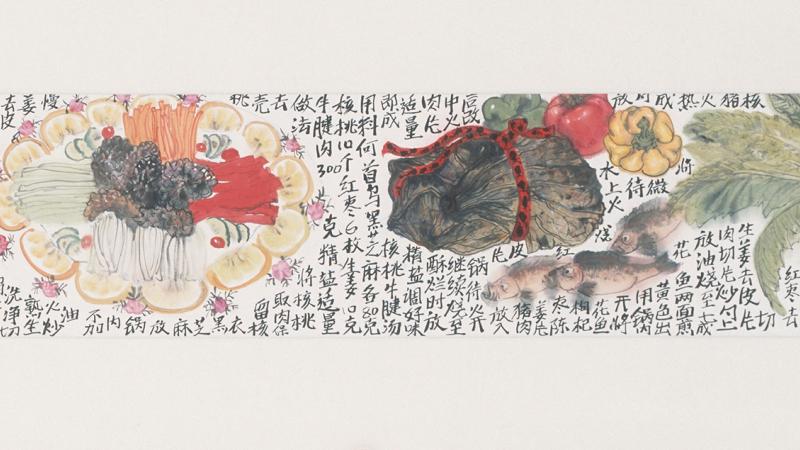 核
猪
火
热
成
时
放
红枣去
生姜去皮切片
肉切片炒匀上
放油烧至七成
花鱼两面煎
黄色出
用锅
将微待
水上火烧
开将
枸杞花鱼
红枣陈
皮姜片
片猪肉
放入
锅待火开
继续烧至
中火
肉片
酥烂时放
适量
精盐调好味
即成
核桃牛腱汤
用料何首乌黑芝麻各80克
核桃10个红枣6枚生姜10克
牛腱肉300克精盐适量
做法将核桃
去取肉保
壳留核
桃黑衣
芝
麻
放
锅
内
不加
油
火炒
熟生
慢
姜
去皮
洗净切